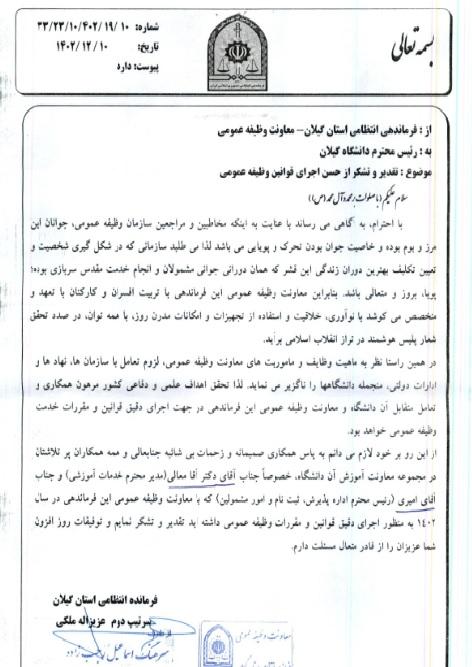 بسمه تعالی
شماره: ۳۳/۲۳/۱۰/۴۰۲/۱۹/۱۰
تاریخ: ۱۴۰۲/۱۲/۱۰
پیوست: دارد
از : فرماندهی انتظامی استان گیلان – معاونت وظیفه عمومی
به : رئیس محترم دانشگاه گیلان
موضوع : تقدیر و تشکر از حسن اجرای قوانین وظیفه عمومی
سلام علیکم (با صلوات بر محمد و آل محمد (ص))
با احترام، به آگاهی می رساند با عنایت به اینکه مخاطبین و مراجعین سازمان وظیفه عمومی، جوانان این
مرز و بوم بوده و خاصیت جوان بودن تحرک و پویایی می باشد لذا می طلبد سازمانی که در شکل گیری شخصیت و
تعیین تکلیف بهترین دوران زندگی این قشر که همان دورانی جوانی مشمولان و انجام خدمت مقدس سربازی بوده؛
پویا، بروز و متعالی باشد. بنابراین معاونت وظیفه عمومی این فرماندهی با تربیت افسران و کارکنان با تعهد و
متخصص می کوشد با نوآوری، خلاقیت و استفاده از تجهیزات و امکانات مدرن روز، با همه توان، در صدد تحقق
شعار پلیس هوشمند در تراز انقلاب اسلامی برآید.
در همین راستا نظر به ماهیت وظایف و ماموریت های معاونت وظیفه عمومی، لزوم تعامل با سازمان ها، نهاد ها و
ادارات دولتی، منجمله دانشگاهها را ناگزیر می نماید. لذا تحقق اهداف علمی و دفاعی کشور مرهون همکاری و
تعامل متقابل آن دانشگاه و معاونت وظیفه عمومی این فرماندهی در جهت اجرای دقیق قوانین و مقررات خدمت
وظیفه عمومی خواهد بود.
از این رو بر خود لازم می دانم به پاس همکاری صمیمانه و زحمات بی شائبه جنابعالی و همه همکاران پر تلاشتان
در مجموعه معاونت آموزش آن دانشگاه، خصوصاً جناب آقای دکتر آقا معالی (مدیر محترم خدمات آموزشی) و جناب
آقای امیری (رئیس محترم اداره پذیرش، ثبت نام و امور مشمولین) که با معاونت وظیفه عمومی این فرماندهی در سال
۱۴۰۲ به منظور اجرای دقیق قوانین و مقررات وظیفه عمومی داشته اید تقدیر و تشکر نمایم و توفیقات روز افزون
شما عزیزان را از قادر متعال مسئلت دارم.
فرمانده انتظامی استان گیلان
سرتیپ دوم عزیزاله ملکی
از طرف
سرهنگ اسماعیل
معاونت وظیفه عمومی